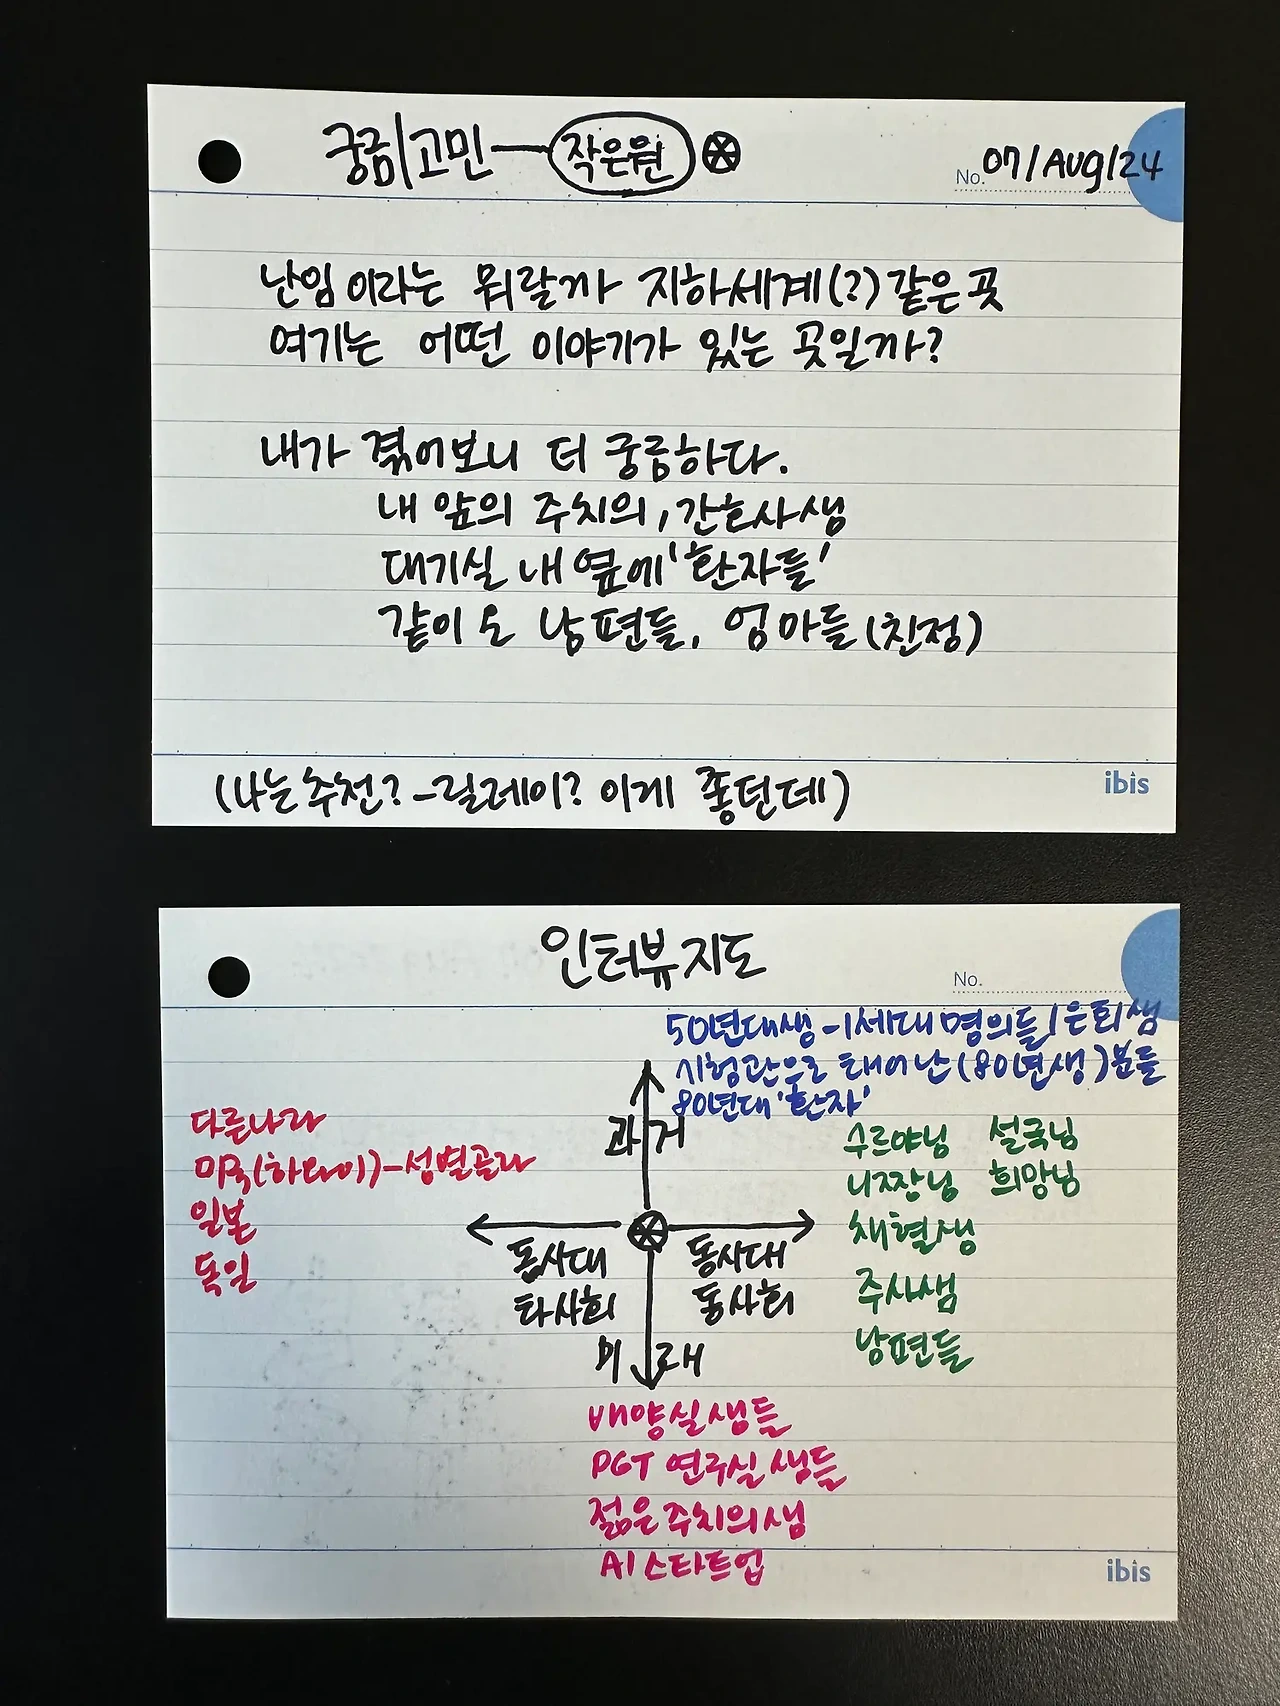 궁금|고민 — 작은원
No. 07/Aug/24
난임이라는 뭐랄까 지하세계(?)같은 곳
여기는 어떤 이야기가 있는 곳일까?
내가 겪어보니 더 궁금하다.
내 앞의 주치의, 간호사샘
대기실 내 옆에 '환자들'
같이 온 남편들, 엄마들(친정)
(나는 추천? - 릴레이? 이게 좋던데)
ibis
인터뷰지도
No.
50년대생 - 1세대 명의들/은퇴샘
시험관으로 태어난(80년생)분들
80년대 '환자'
과거
다른나라
미국(하와이) - 성별골라
일본
독일
동시대
타사회
동시대
동사회
수르야님 설국님
니조장님 희망님
채혈샘
주사샘
남편들
미래
배양실샘들
PGT 연구실샘들
젊은주치의샘
AI스타트업
ibis